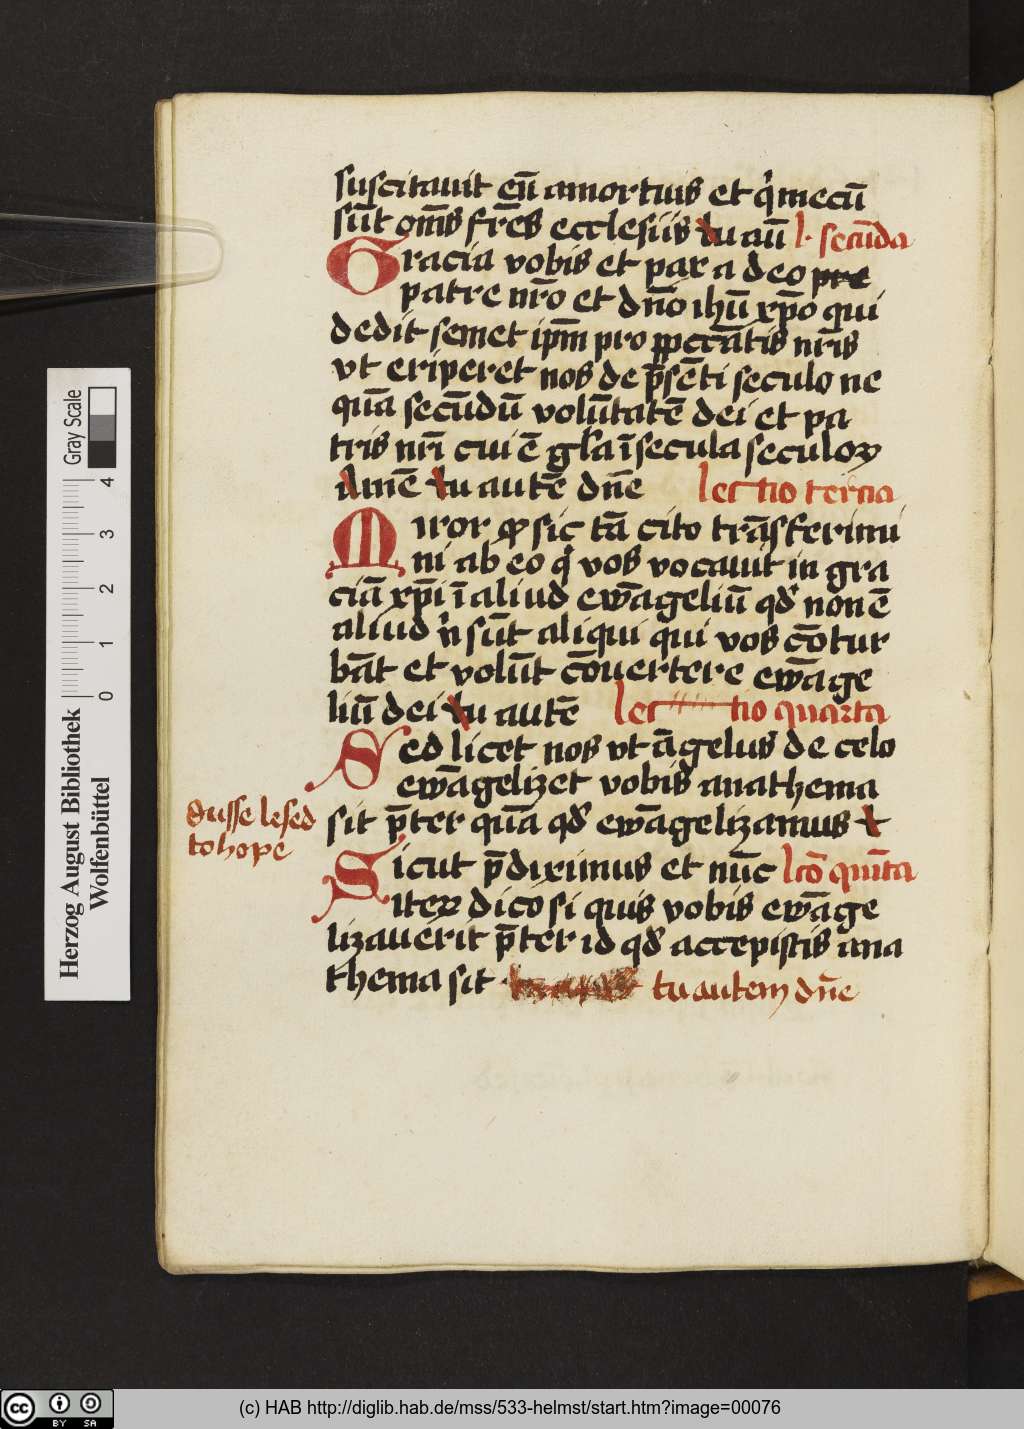 suscitauit eū amortuis et q̇ mecū
sūt om̄s fr̄es ecclesiis tu aū l· secūda
Gracia vobis et pax a deo pre
patre nr̄o et dn̄o ihū xp̄o qui
dedit semet ipm̄ pro ppcc̄atis nr̄is
vt eriperet nos de p̄sēti seculo ne
quā secūdū volūtatē dei et pa
tris nr̄i cui ē gl̄a ī secula seculoꝝ
Amē tu autē dn̄e lectio tercia
Miror ꝙ sic tā cito trāsferimi
ni ab eo q̇ vos vocauit in gra
ciā xp̄i ī aliud ewāgeliū qd̓ non ē
aliud n̓ sūt aliqui qui vos cōtur
bāt et volūt cōuertere ewāge
liū dei tu autē lectio quarta
Sed licet nos vt āgelus de celo
ewāgelizet vobis anathema
sit p̄ter quā qd̓ ewāgelizamus t
Dusse lesed
to hope
Sicut p̄diximus et nūc lcō quīta
iteꝝ dico si quis vobis ewāge
lizauerit p̄ter id qd̓ accepistis ana
thema sit tu autem dn̄e
Gray Scale
4
3
2
1
0
Herzog August Bibliothek
Wolfenbüttel
cc BY SA
(c) HAB http://diglib.hab.de/mss/533-helmst/start.htm?image=00076